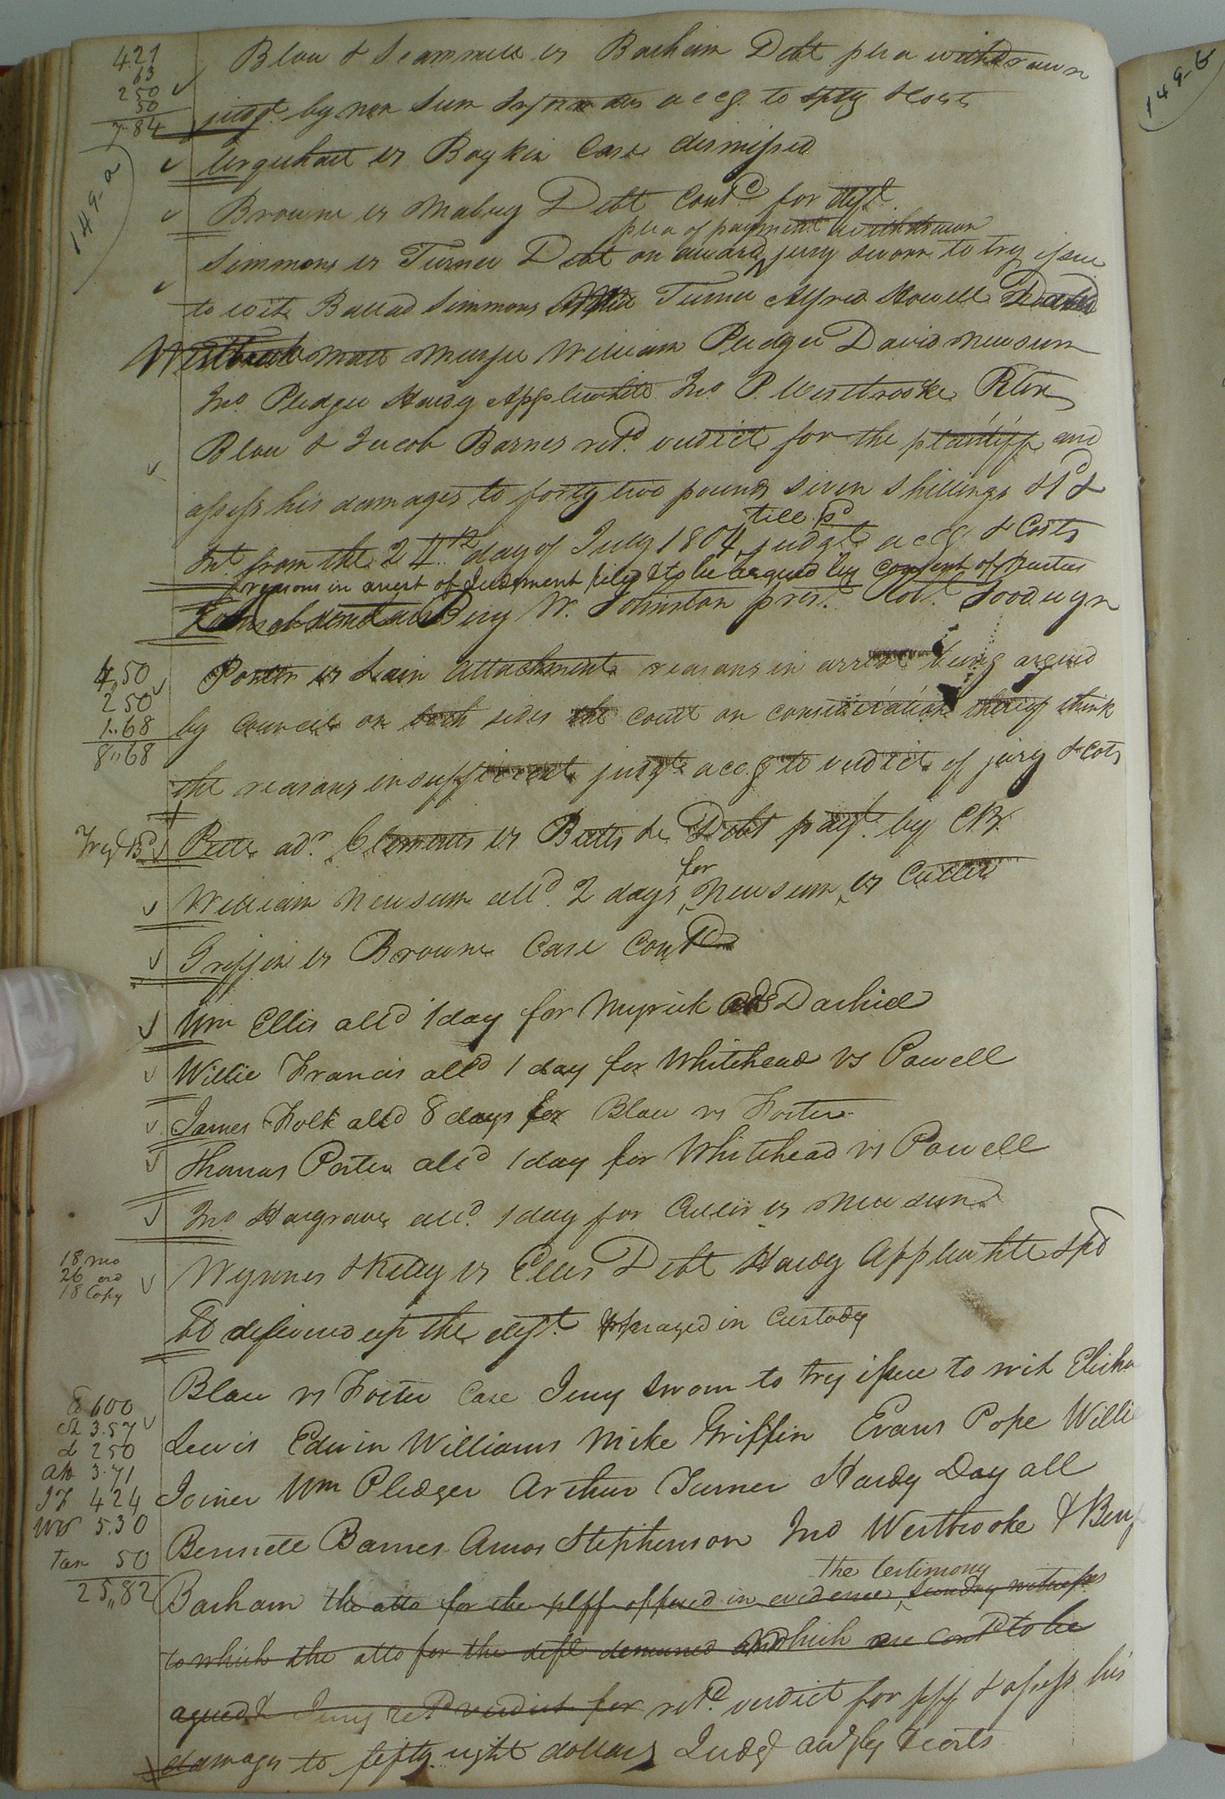 4.21
63
2 50
50
7.84
149-a
149-b
Blow & Scammell vs Barham Debt plea withdrawn
judgt by non sum Informatus accg to spty & costs
Urquhart vs Boykin Case dismissed
Browne vs Mabry Debt Contd for deft.
plea of payment withdrawn
Simmons vs Turner Debt on award, jury sworn to try issue
to wit Ballad Simmons Turner Alfred Howell
William Pledger David Newsum
Jno Pledger Hardy Applewhite Jno P. Westbrooke
Blow & Jacob Barnes retd verdict for the plaintiff and
assess his damages to forty two pounds seven shillings &
till pd
Int from the 24th day of July 1804 judgt accg & Costs
reasons in arrest of Judgment filed & to be argued by consent of parties
Benj W. Johnston prest Robt Goodwyn
4,50
2 50
1..68
8..68
Porter vs Lain Attachment reasons in arrest being argued
by Council on both sides the court on consideration thereof think
the reasons insufficient judgt accg to verdict of jury & Costs
adr Clements vs Butts &c Debt payt by
William Newsum alld 2 days for Newsum vs Cutler
Griffin vs Browne Case Contd
Wm Ellis alld 1 day for Myrick ads Dashiel
Willie Francis alld 1 day for Whitehead vs Powell
James Folk alld 8 days for Blow vs Foster
Thomas Porter alld 1 day for Whitehead vs Powell
Jno Hargrave alld 1 day for Cutler vs Newsum
18 mo
26 ord
18 Copy
Wynnes & Kelly vs Ellis Debt Hardy Applewhite spl
bl delivered up the deft & prayed in Custody
Blow vs Foster Case Jury sworn to try issue to wit Elisha
600
3.57
2 50
3.71
4 24
5.30
Tax 50
25,,82
Lewis Edwin Williams Mike Griffin Evans Pope Willie
Joiner Wm Pledger Arthur Turner Hardy Day all
Bennett Barnes Amos Stephenson Jno Westbrooke & Benj
the testimony
Barham the atto for the plff offered in evidence, sunday witnesses
to which the atto for the deft demurred and which are contd to be
agued & Jury retd verdict for retd verdict for plff & assess his
damages to fifty eight dollars Judgt accgly & costs